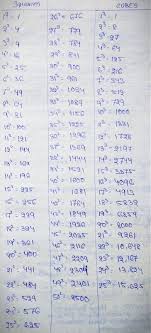 Squares
1² = 1
2² = 4
3² = 9
4² = 16
5² = 25
6² = 36
7² = 49
8² = 64
9² = 81
10² = 100
11² = 121
12² = 144
13² = 169
14² = 196
15² = 225
16² = 256
17² = 289
18² = 324
19² = 361
20² = 400
21² = 441
22² = 484
23² = 529
24² = 576
25² = 625
26² = 676
27² = 729
28² = 784
29² = 841
30² = 900
31² = 961
32² = 1024
33² = 1089
34² = 1156
35² = 1225
36² = 1296
37² = 1369
38² = 1444
39² = 1521
40² = 1600
41² = 1681
42² = 1764
43² = 1849
44² = 1936
45² = 2025
46² = 2116
47² = 2209
48² = 2304
49² = 2401
50² = 2500
CUBES
1³ = 1
2³ = 8
3³ = 27
4³ = 64
5³ = 125
6³ = 216
7³ = 343
8³ = 512
9³ = 729
10³ = 1000
11³ = 1331
12³ = 1728
13³ = 2197
14³ = 2744
15³ = 3375
16³ = 4096
17³ = 4913
18³ = 5838
19³ = 6859
20³ = 8000
21³ = 9261
22³ = 10,648
23³ = 12,167
24³ = 13,824
25³ = 15,625